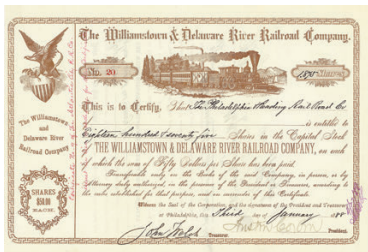 The Williamstown & Delaware River Railroad Company.
No. 20
1875 Shares
This is to Certify, That The Philadelphia & Reading Rail Road Co
is entitled to
Eighteen hundred & seventy five Shares in the Capital Stock
THE WILLIAMSTOWN & DELAWARE RIVER RAILROAD COMPANY, on each
of which the sum of Fifty Dollars per Share has been paid.
Transferable only on the Books of the said Company, in person, or by
Attorney duly authorized in the presence of the President or Treasurer, according to
the rules established for that purpose, and on surrender of this Certificate.
Witness the Seal of the Corporation and the signatures of the President and Treasurer
at Philadelphia, this Third day of January 188
John Welch Treasurer.
President.
The Williamstown
and
Delaware River
Railroad Company
SHARES
$50.00
EACH.